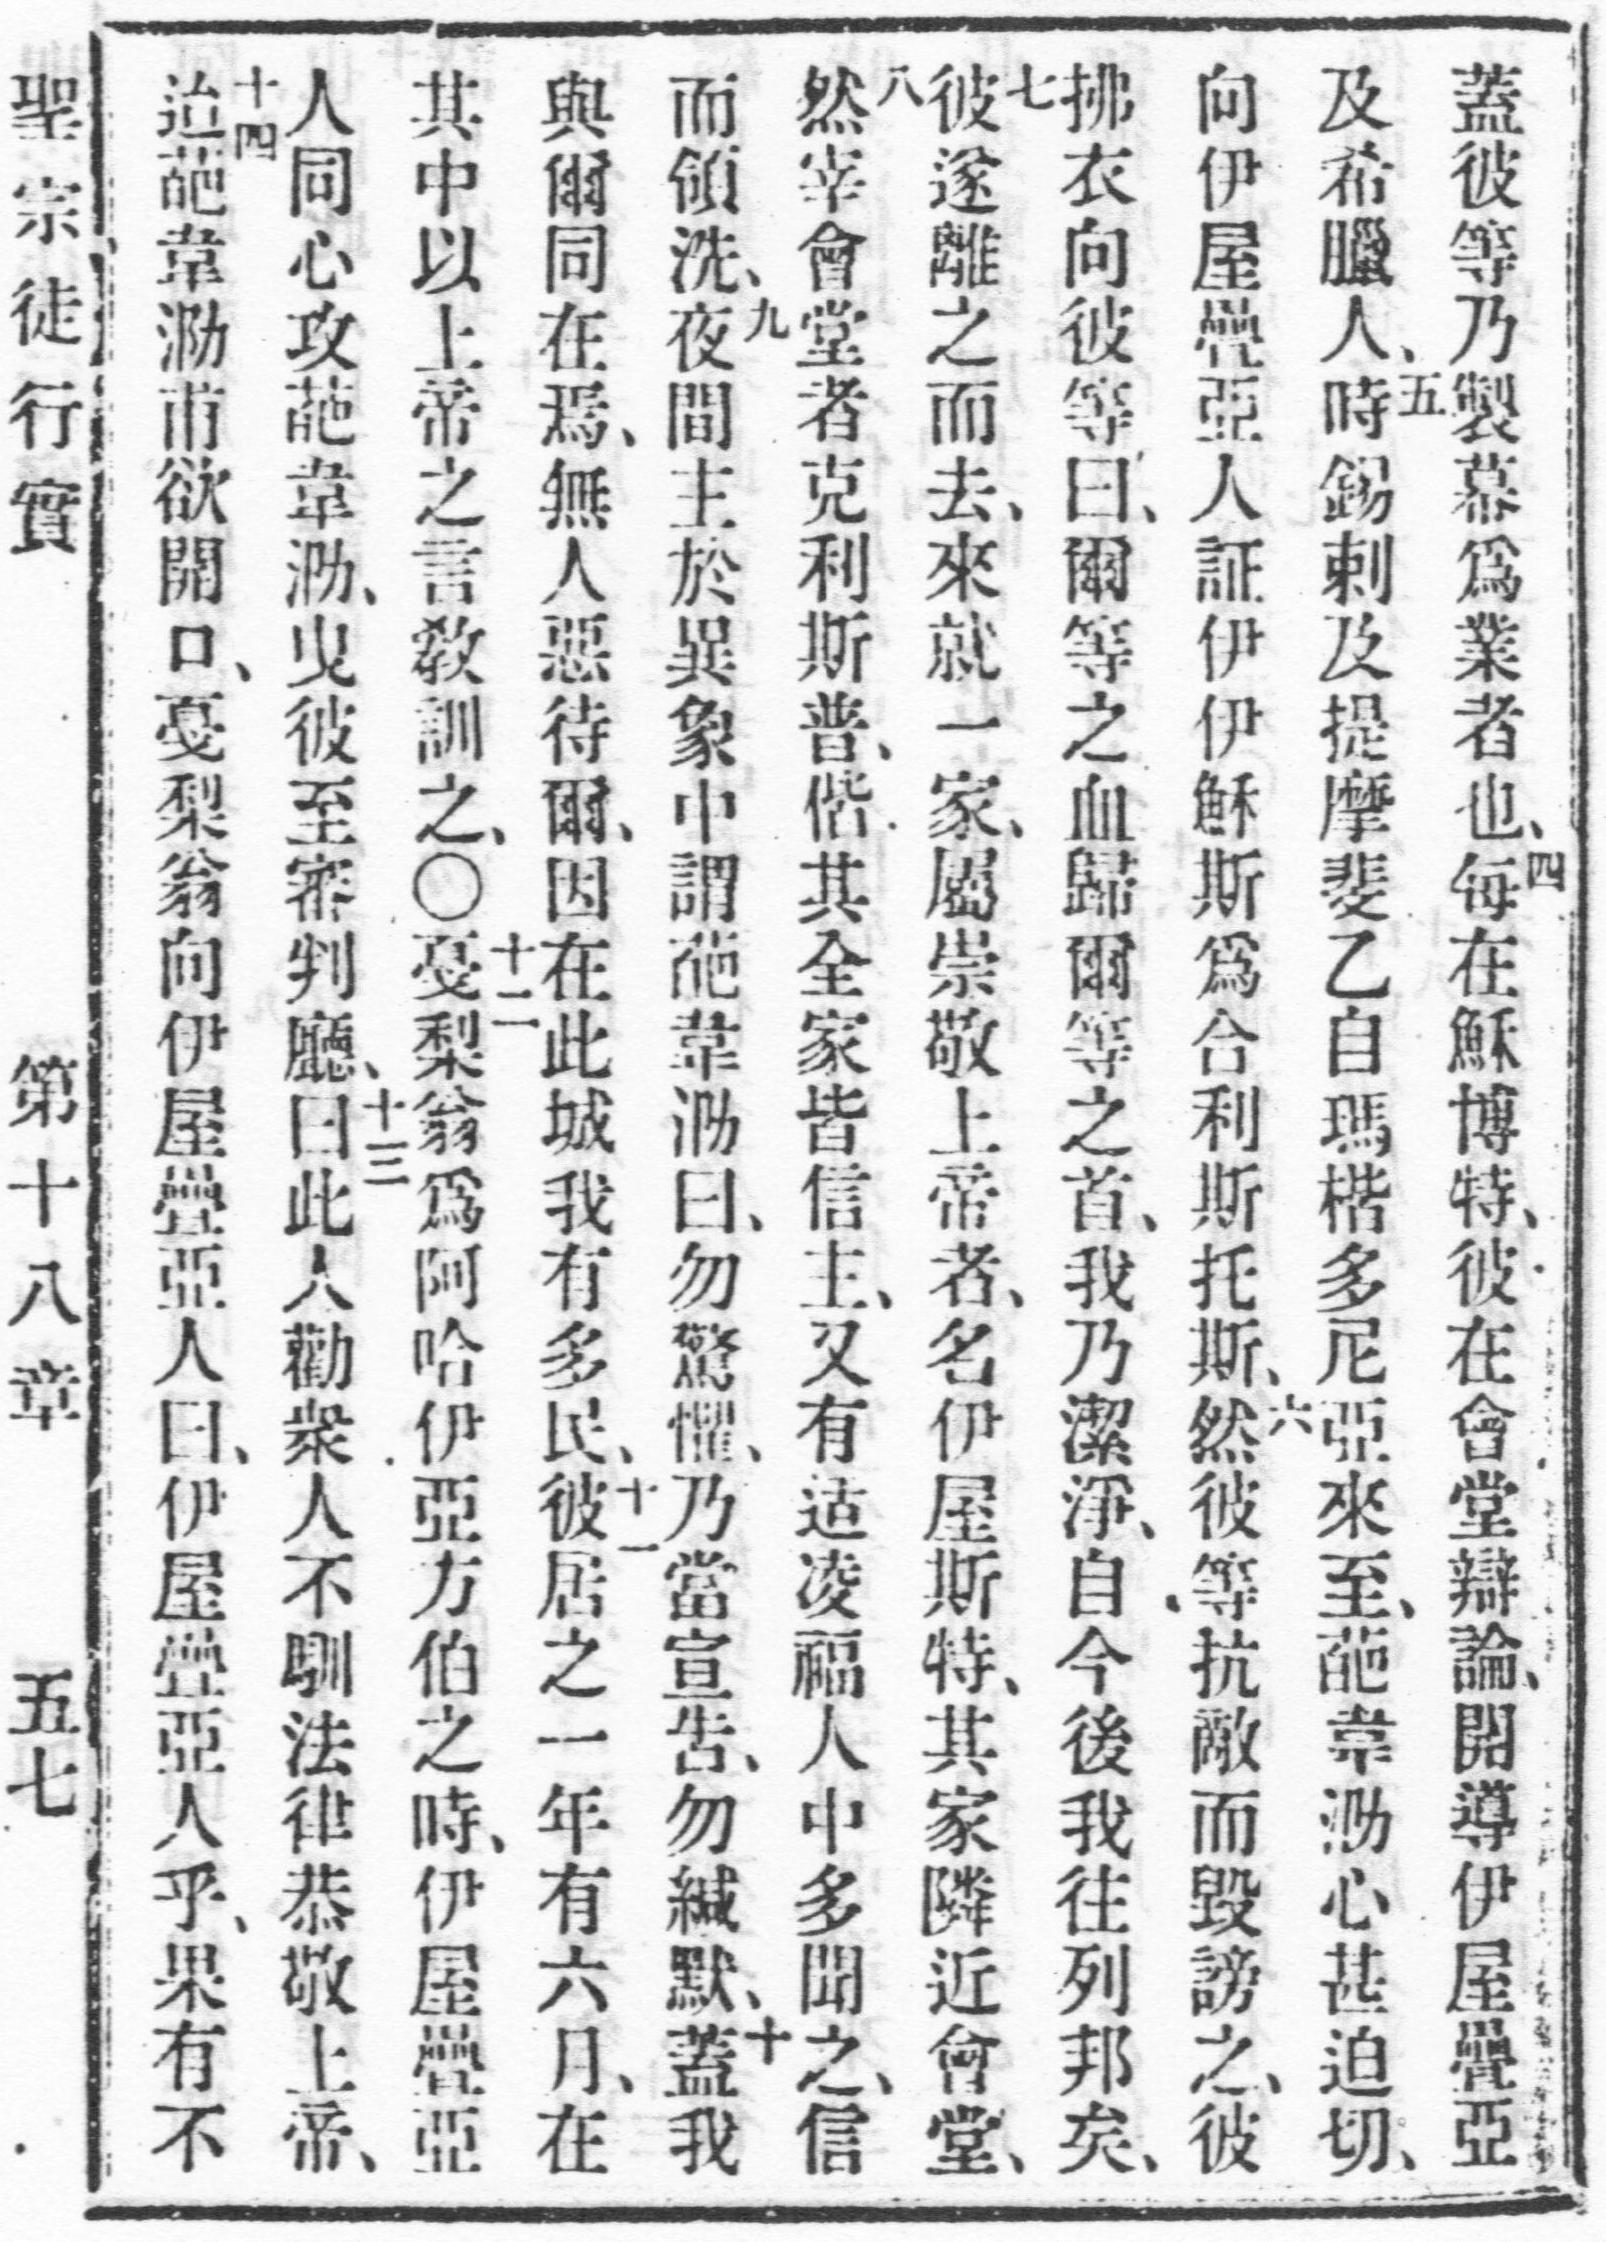 蓋彼等乃製幕爲業者也、四每在穌博特、彼在會堂辯論、開導伊屋疊亞
及希臘人、五時錫剌及提摩斐乙自瑪楷多尼亞來至、葩韋泐心甚迫切、
向伊屋疊亞人証伊伊穌斯爲合利斯托斯、六然彼等抗敵而毀謗之、彼
拂衣向彼等曰、爾等之血歸爾等之首、我乃潔淨、自今後我往列邦矣、
七彼遂離之而去、來就一家、屬崇敬上帝者、名伊屋斯特、其家隣近會堂、
八然宰會堂者克利斯普、偕其全家皆信主、又有适凌福人中多聞之、信
而領洗、九夜間主於異象中謂葩韋泐曰、勿驚懼、乃當宣告、勿緘默、十蓋我
與爾同在焉、無人惡待爾、因在此城我有多民、十一彼居之一年有六月、在
其中以上帝之言敎訓之、〇十二戛梨翁爲阿哈伊亞方伯之時、伊屋疊亞
人同心攻葩韋泐、曳彼至審判廳、十三曰此人勸衆人不馴法律恭敬上帝、
十四迨葩韋泐甫欲開口、戛梨翁向伊屋疊亞人曰、伊屋疊亞人乎、果有不
聖宗徒行實 第十八章 五七